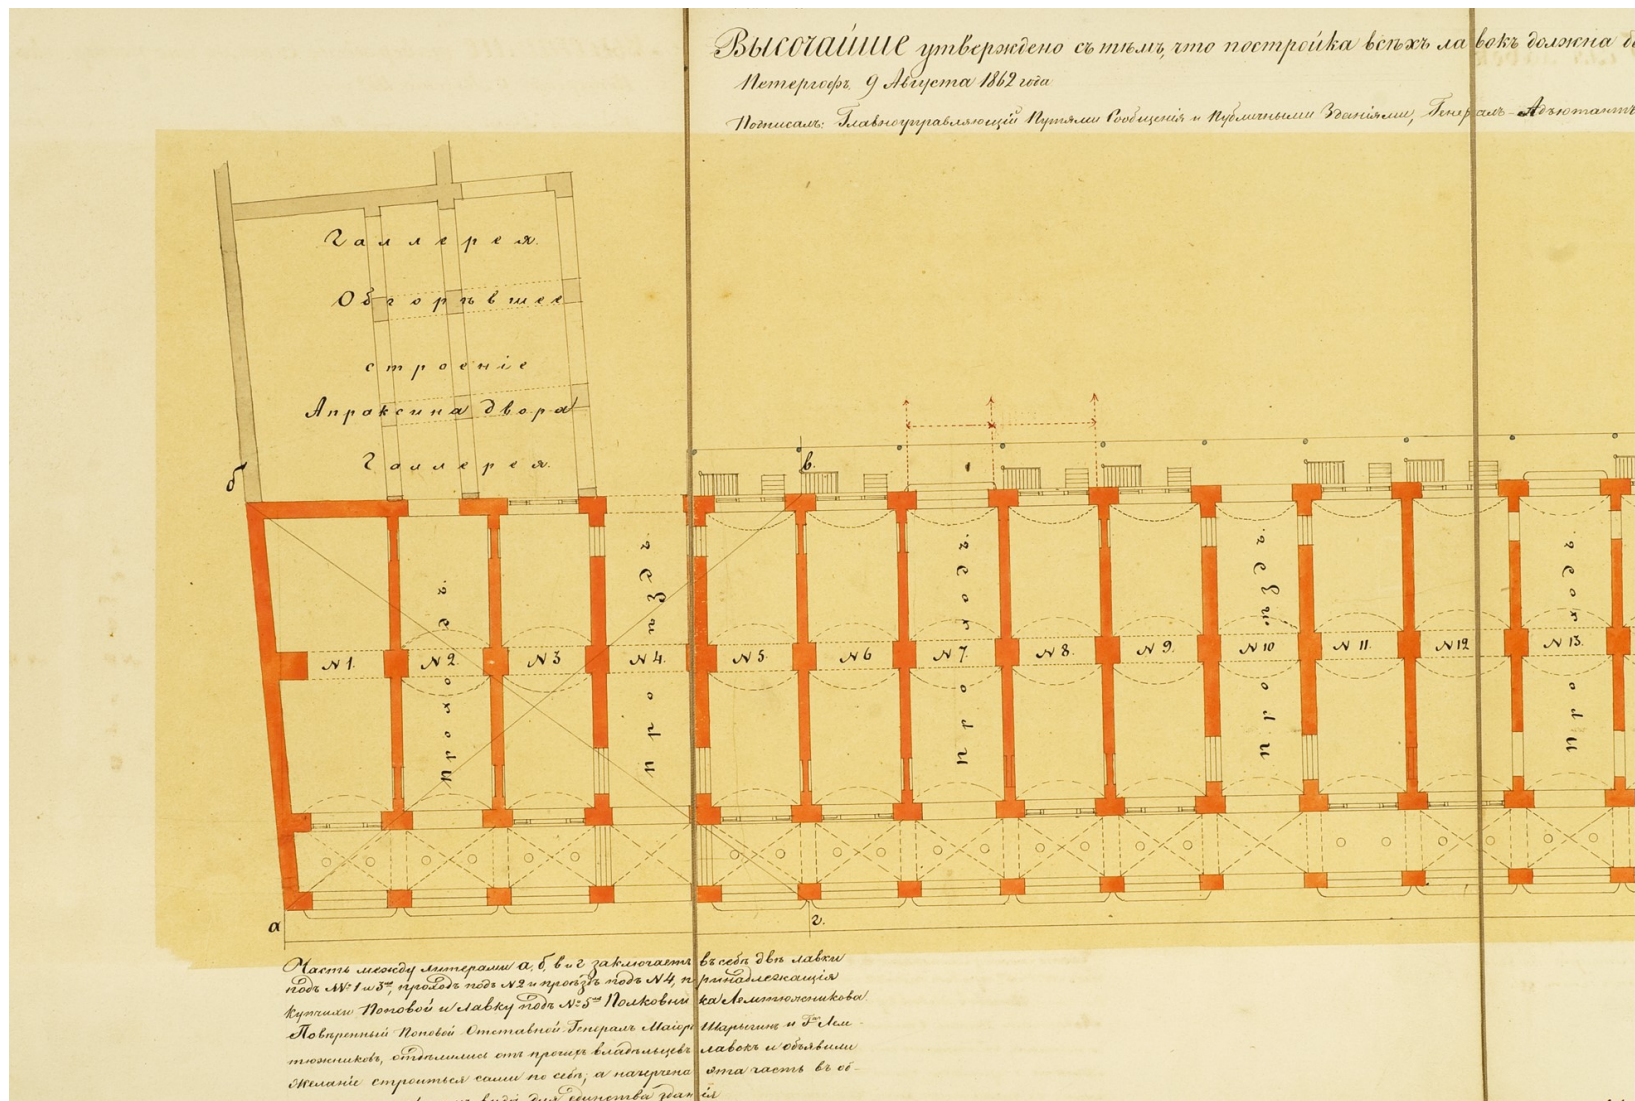 Высочайше утверждено съ тѣмъ, что постройка всѣхъ лавокъ должна
Петергофъ. 9 Августа 1862 года
Подписалъ: Главноуправляющій Путями Сообщенія и Публичными Зданіями, Генералъ-Адъютантъ
Галлерея.
Обгорѣвшее
строеніе
Апраксина двора
Галлерея.
б
в.
№1.
№2.
№3
№4.
№5.
№6
№7.
№8.
№9.
№10
№11.
№12
№13.
проходъ.
проѣздъ.
проходъ.
проѣздъ.
проходъ.
а
г.
Часть между литерами а, б, в и г заключаетъ въ себѣ двѣ лавки
подъ №№ 1 и 3мъ, проходъ подъ №2 и проѣздъ подъ №4, принадлежащія
купчихи Поповой и лавку подъ №5мъ Полковника Лемтюжникова.
Повѣренный Поповой Отставной Генералъ Маіоръ и Гнъ Лем-
тюжниковъ, отдѣлились отъ прочихъ владѣльцевъ лавокъ и объявили
желаніе строиться сами по себѣ; а начерчена эта часть въ об-
видѣ для единства зданія